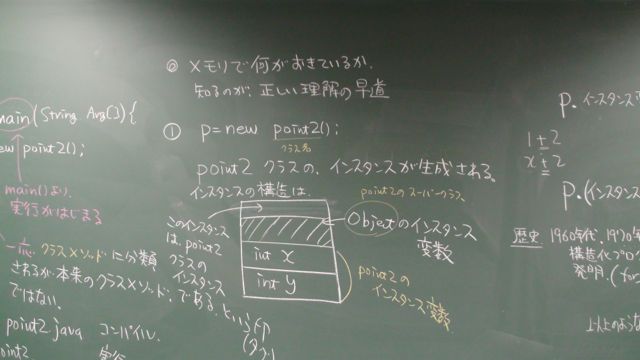 main(String Arg[]){
new point2();
main()より、
実行がはじまる
一応、クラスメソッドに分類
されるが、本来のクラスメソッド、である、という
ではない。
point2.java コンパイル.
point2 実行
◎ メモリで何がおきているか.
知るのが、正しい理解の早道
① p=new point2();
クラス名
point2 クラスの、インスタンスが生成される。
インスタンスの構造は、
point2のスーパークラス.
このインスタンス
は、point2
クラスの
インスタンス
Objectのインスタンス
変数
int x
int y
point2の
インスタンス変数
p.インスタンス変
1+2
x+2
p.(インスタン
歴史 1960年代,1970年
構造化プロ
発明.(for
以上のような